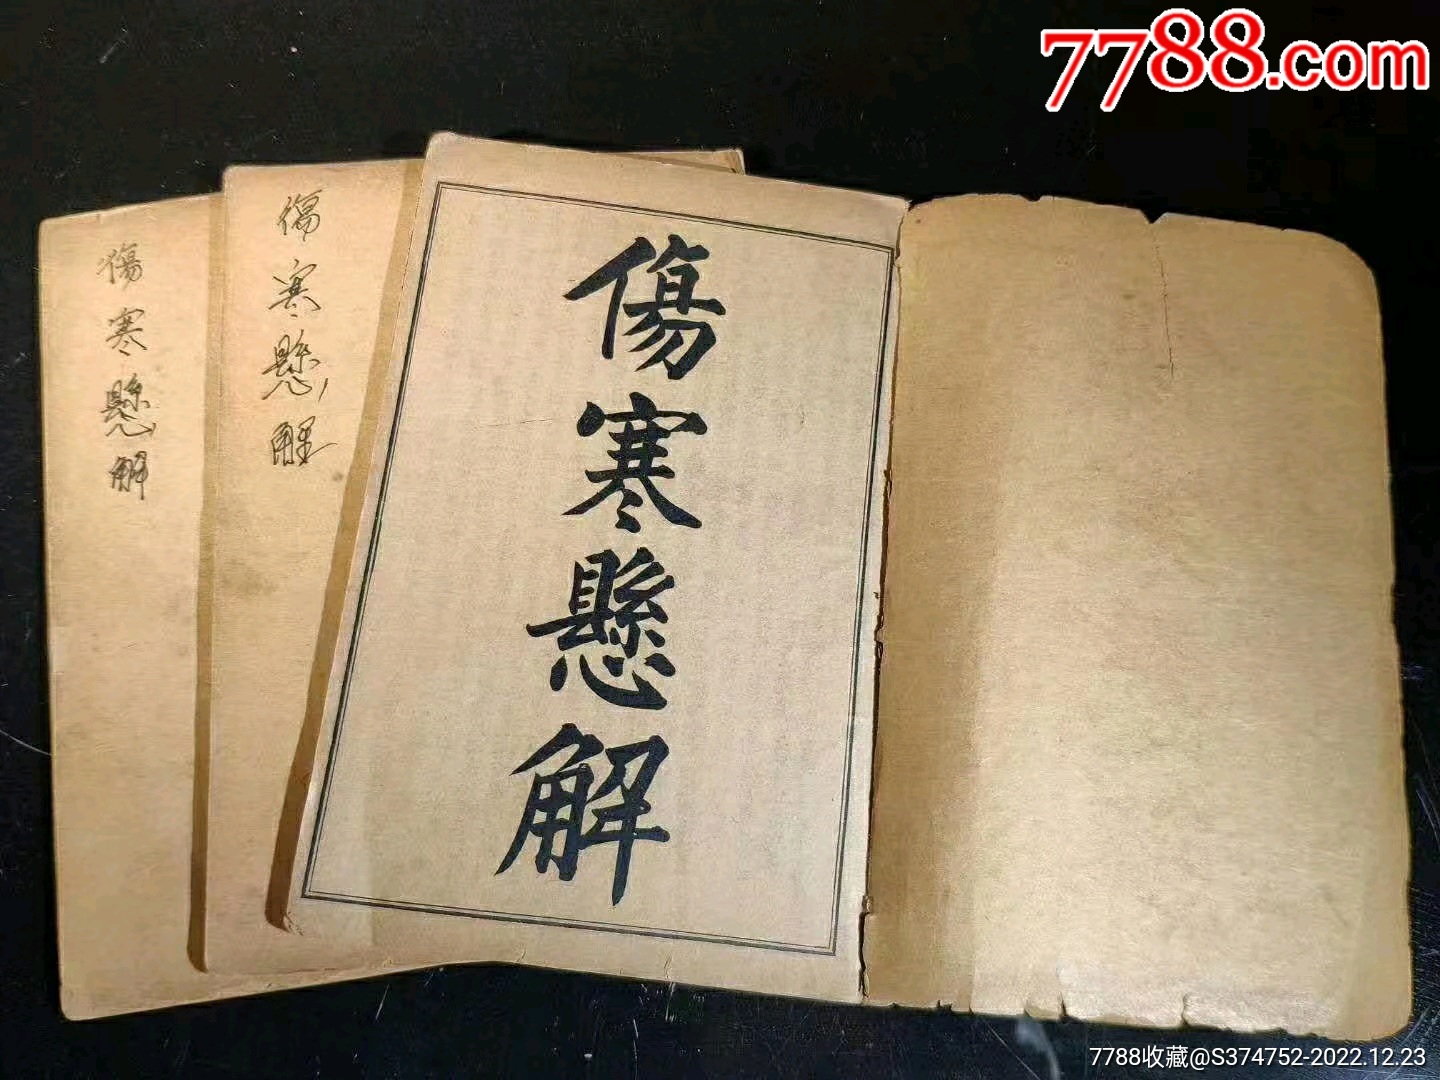 7788.com
傷寒懸解
傷寒懸解
傷寒懸解
7788收藏@S374752-2022.12.23